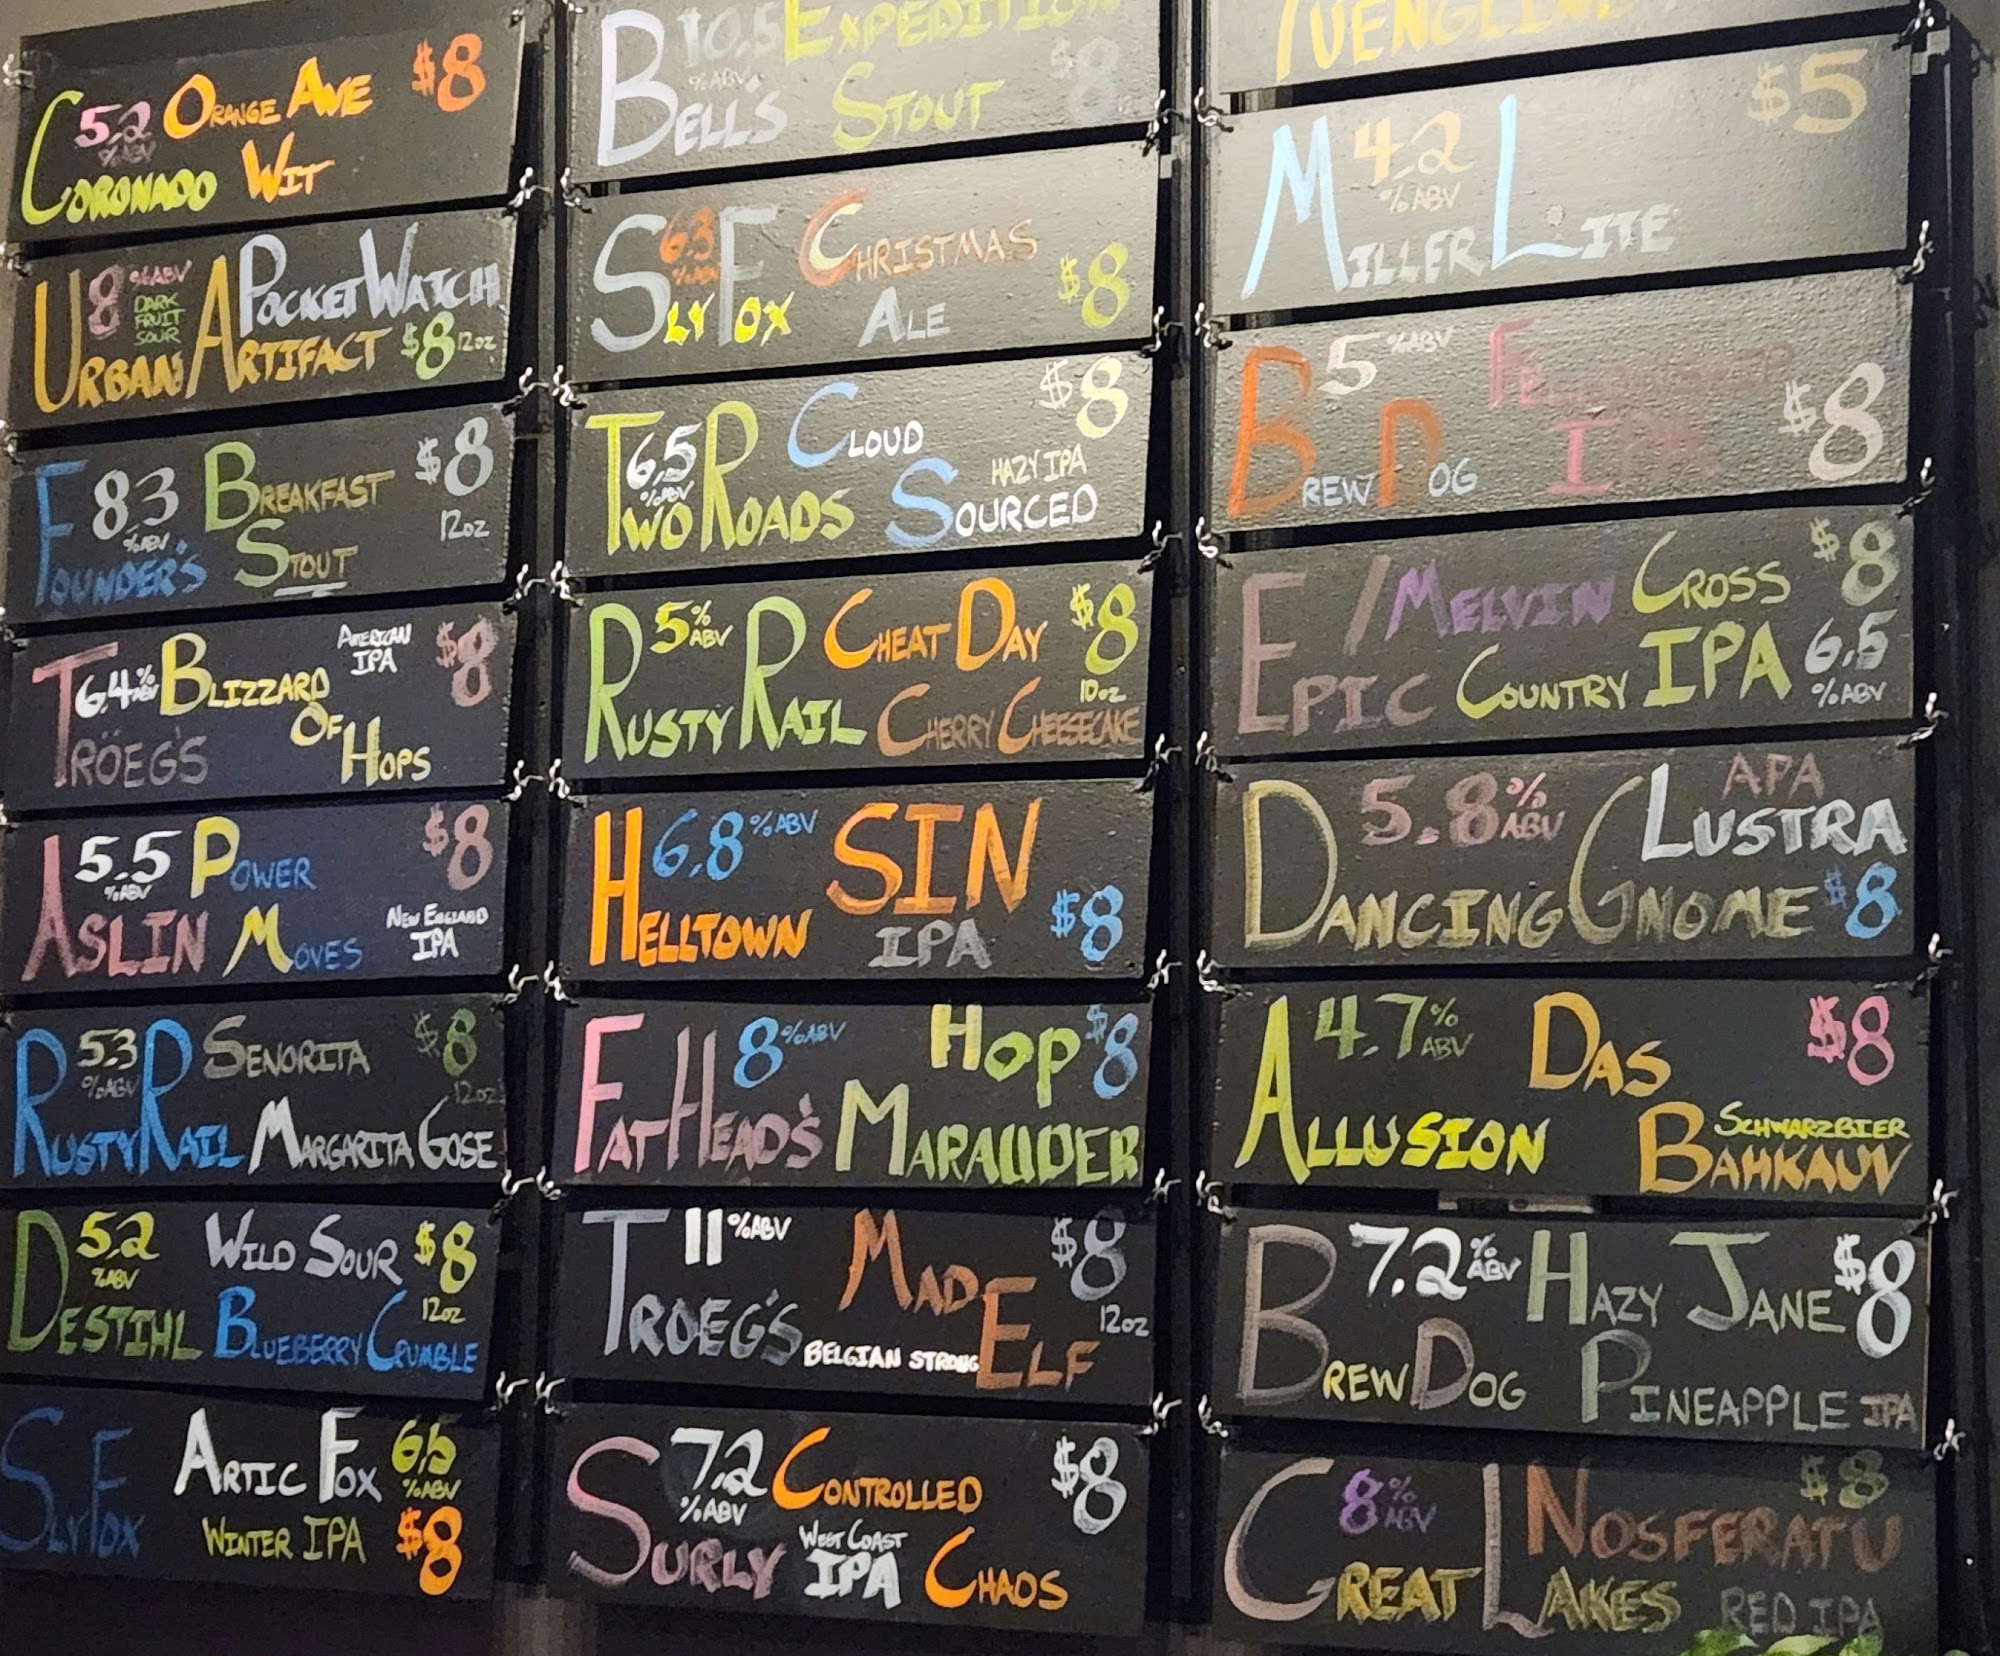 5.2 ORANGE AVE $8
%ABV
CORONADO WIT
8 %ABV POCKET WATCH
DARK
FRUIT
SOUR
URBAN ARTIFACT $8 12oz
8.3 BREAKFAST $8
%ABV 12oz
FOUNDER'S STOUT
6.4% ABV BLIZZARD AMERICAN $8
IPA
OF
TRÖEG'S HOPS
5.5 POWER $8
%ABV
ASLIN MOVES NEW ENGLAND
IPA
5.3 SENORITA $8
%ABV 12oz
RUSTY RAIL MARGARITA GOSE
5.2 WILD SOUR $8
%ABV 12oz
DESTIHL BLUEBERRY CRUMBLE
ARTIC FOX 6.5
%ABV
SLY FOX WINTER IPA $8
10.5 EXPEDITION
%ABV $8
BELL'S STOUT 12
6.3 CHRISTMAS
%ABV $8
SLY FOX ALE
6.5 CLOUD $8
%ABV HAZY IPA
TWO ROADS SOURCED
5% ABV CHEAT DAY $8
10oz
RUSTY RAIL CHERRY CHEESECAKE
6.8 %ABV SIN
HELLTOWN IPA $8
8 %ABV HOP $8
FATHEAD'S MARAUDER
11 %ABV MAD $8
12oz
TROEG'S BELGIAN STRONG ELF
7.2 CONTROLLED $8
%ABV WEST COAST
SURLY IPA CHAOS
YUENGLING
4.2 $5
%ABV
MILLER LITE
5 %ABV
$8
BREWDOG IPA
/MELVIN CROSS $8
EPIC COUNTRY IPA 6.5
%ABV
5.8% ABV APA
LUSTRA
DANCING GNOME $8
4.7% ABV DAS $8
SCHWARZBIER
ALLUSION BAHKAUV
7.2% ABV HAZY JANE $8
BREWDOG PINEAPPLE IPA
8% ABV NOSFERATU $8
GREAT LAKES RED IPA